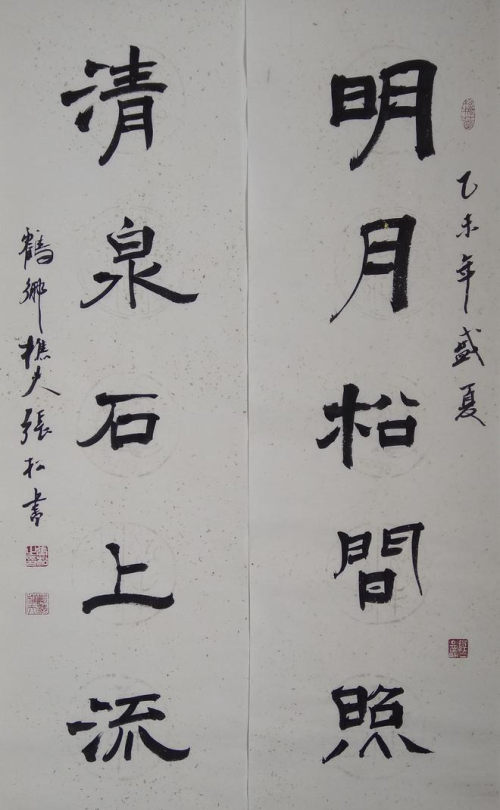 乙未年盛夏
明月松間照
清泉石上流
鶴鄉樵夫張松書